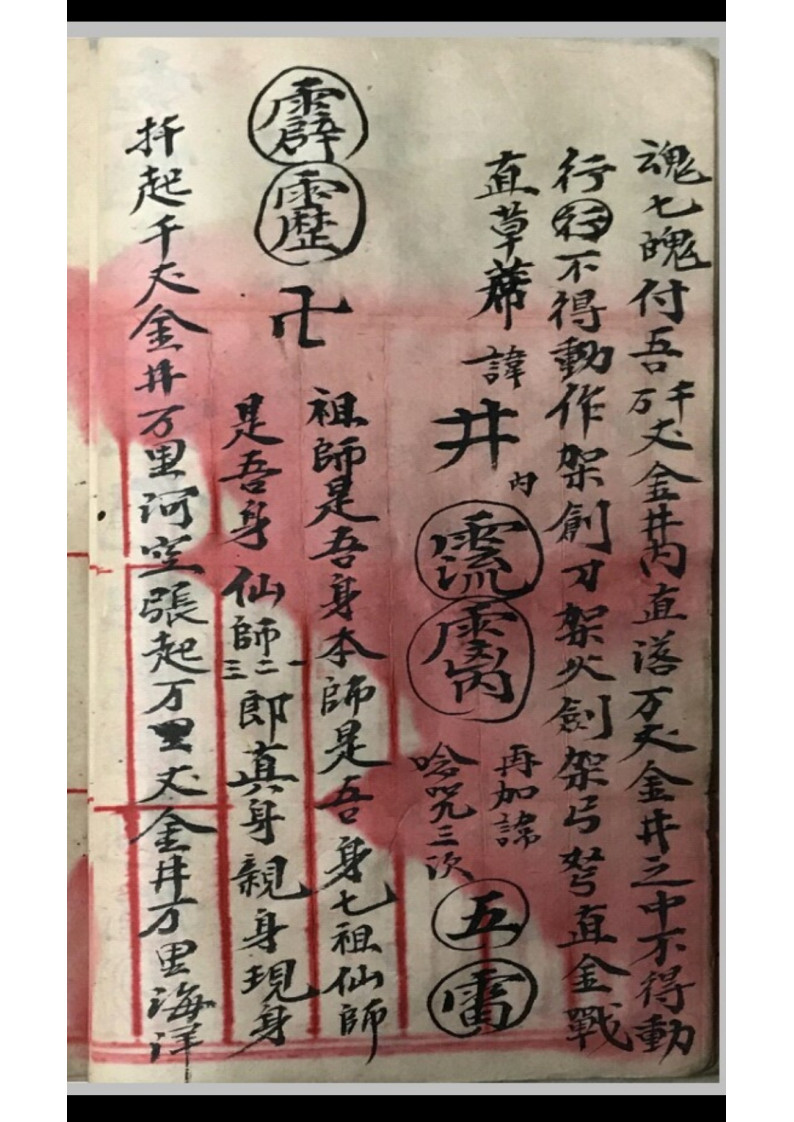 魂七魄付吾万千丈金井内直落万丈金井之中不得動
行行不得動作架創刀架火劍架弓弩直金戰
直草蓆諱井内
再加諱
哈咒三次
五雷
霹靂卍
祖師是吾身本師是吾身七祖仙師
是吾身仙師一二三郎真身親身現身
扦起千丈金井万里河空張起万里丈金井万里海洋